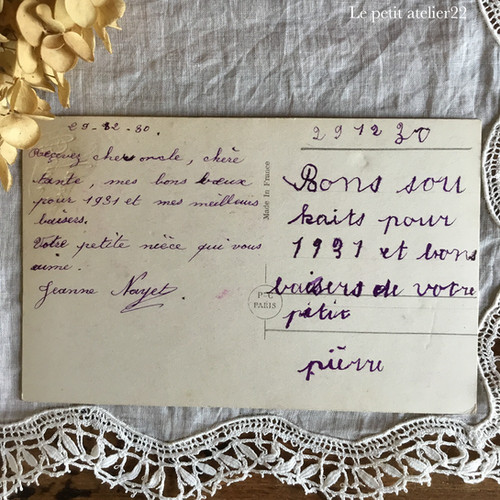 Le petit atelier22
29-12-30.
Reçevez cher oncle, chère
tante, mes bons voeux
pour 1931 et mes meilleurs
baisers.
Votre petite nièce qui vous
aime.
Jeanne Nayet
Made in France
P-C
PARIS
29 12 30
Bons sou
haits pour
1931 et bons
baisers de votre
petit
pierre